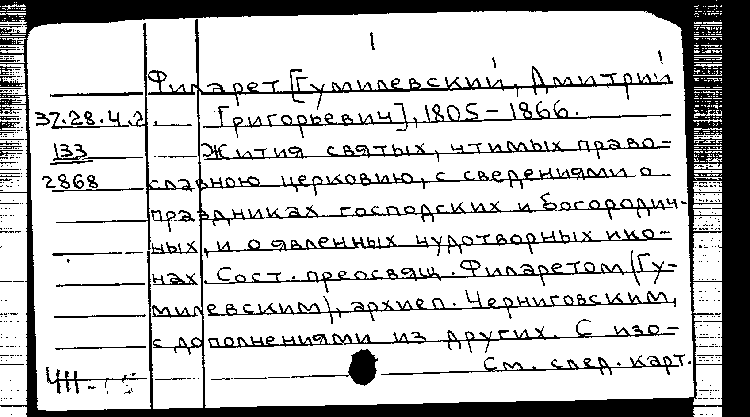 1
Филарет [Гумилевский, Дмитрий
37.28.4.2. Григорьевич], 1805-1866.
133 Жития святых, чтимых право-
2868 славною церковию, с сведениями о
праздниках господских и богородич-
ных, и о явленных чудотворных ико-
нах. Сост. преосвящ. Филаретом (Гу-
милевским), архиеп. Черниговским,
с дополнениями из других. С изо-
См. след. карт.